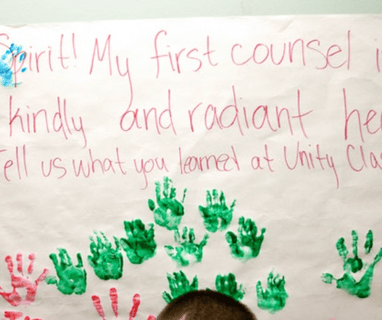 Spirit! My first counsel i
kindly and radiant hea
Tell us what you learned at Unity Cla